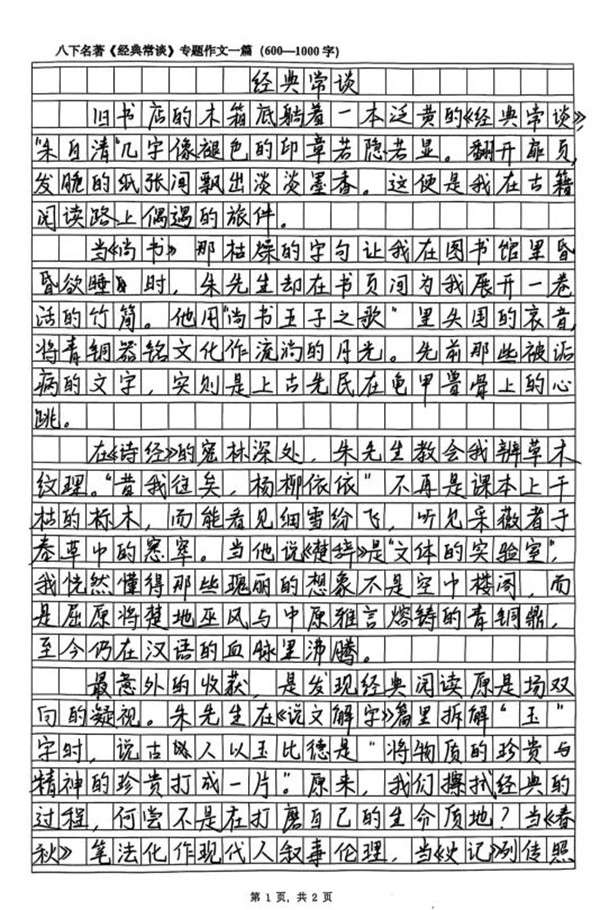 八下名著《经典常谈》专题作文一篇（600—1000字）
经典常谈
旧书店的木箱底躺着一本泛黄的《经典常谈》，
"朱自清"几字像褪色的印章若隐若显。翻开扉页，
发脆的纸张间飘出淡淡墨香。这便是我在古籍
阅读路上偶遇的旅伴。
当《尚书》那枯燥的字句让我在图书馆里昏
昏欲睡时，朱先生却在书页间为我展开一卷
活的竹简。他用"尚书五子之歌"里头国的哀音，
将青铜器铭文化作流淌的月光。先前那些被诟
病的文字，实则是上古先民在龟甲兽骨上的心
跳。
在《诗经》的密林深处，朱先生教会我辨草木
纹理。"昔我往矣，杨柳依依"不再是课本上干
枯的标本，而能看见细雪纷飞，听见采薇者于
春草中的窸窣。当他说《楚辞》是"文体的实验室"，
我恍然懂得那些瑰丽的想象不是空中楼阁，而
是屈原将楚地巫风与中原雅言熔铸的青铜鼎，
至今仍在汉语的血脉里沸腾。
最意外的收获，是发现经典阅读原是场双
向的凝视。朱先生在《说文解字》篇里拆解"玉"
字时，说古人以玉比德是"将物质的珍贵与
精神的珍贵打成一片"。原来，我们擦拭经典的
过程，何尝不是在打磨自己的生命质地？当《春
秋》笔法化作现代人叙事伦理，当《史记》列传照
第 1 页，共 2 页